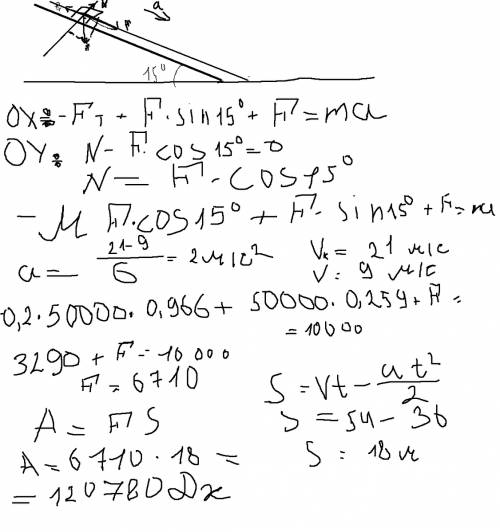 a
N
F
15°
OX: -Fт + F·sin15° + F = ma
OY: N - F·cos15° = 0
N = F·cos15°
-М F·cos15° + F·sin15° + F = ma
a = 21-9 / 6 = 2 м/с²
Vк = 21 м/с
V = 9 м/с
0,2·50000·0,966 + 50000·0,259 + F =
= 10000
3290 + F = 10 000
F = 6710
S = Vt - at²/2
S = 54 - 36
S = 18 м
A = FS
A = 6710·18 =
= 120780 Дж